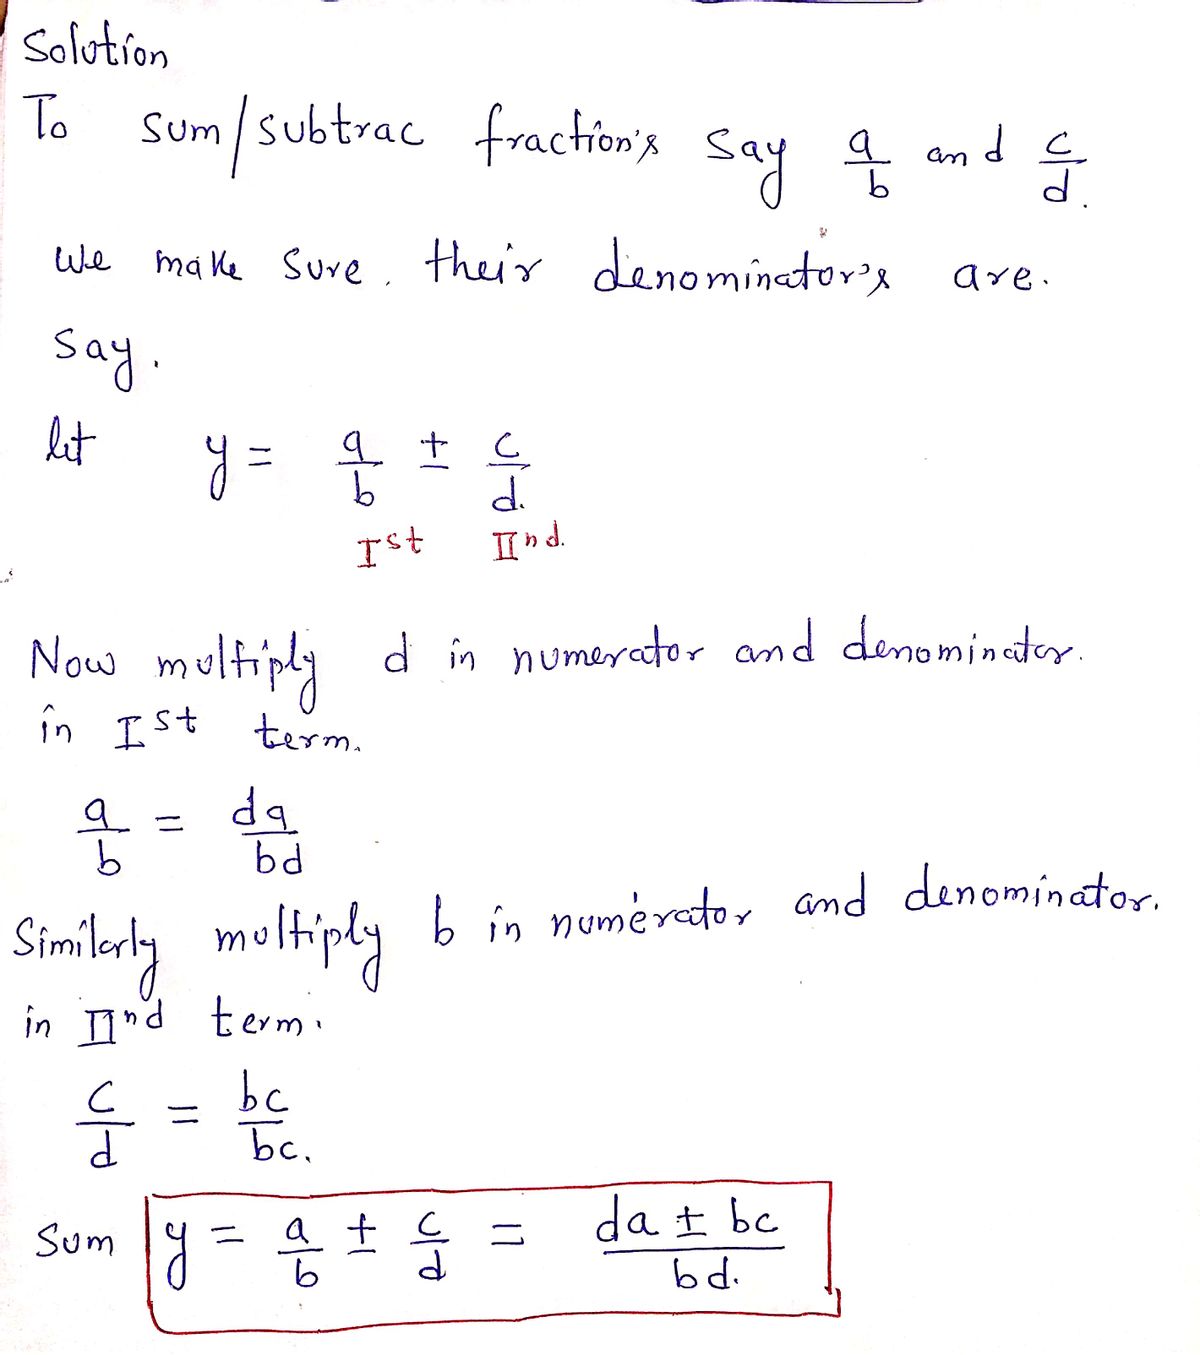 Solution
To sum/subtrac fraction's say a/b and c/d.
We make sure. their denominator's are.
say.
let y = a/b ± c/d.
Ist IInd.
Now multiply d in numerator and denominator.
in Ist term.
a/b = da/bd
Similarly multiply b in numerator and denominator.
in IInd term.
c/d = bc/bc.
Sum y = a/b ± c/d = da ± bc/bd.